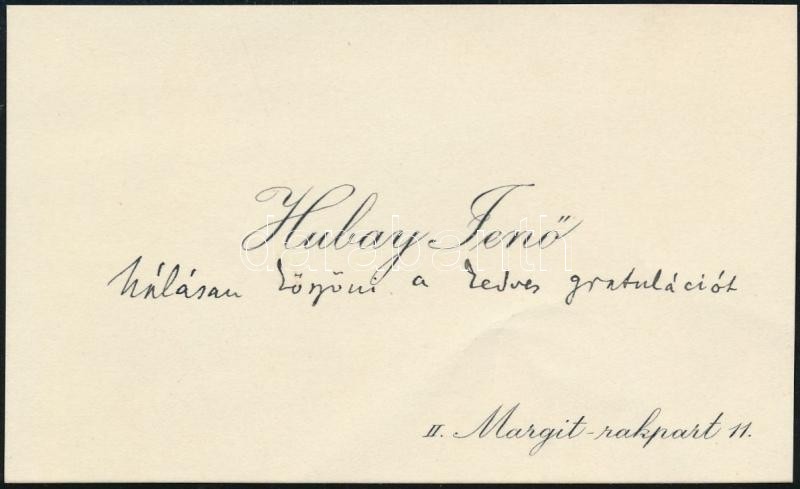 Hubay Jenő
hálásan köszöni a kedves gratulációt
II. Margit-rakpart 11.
darabanth